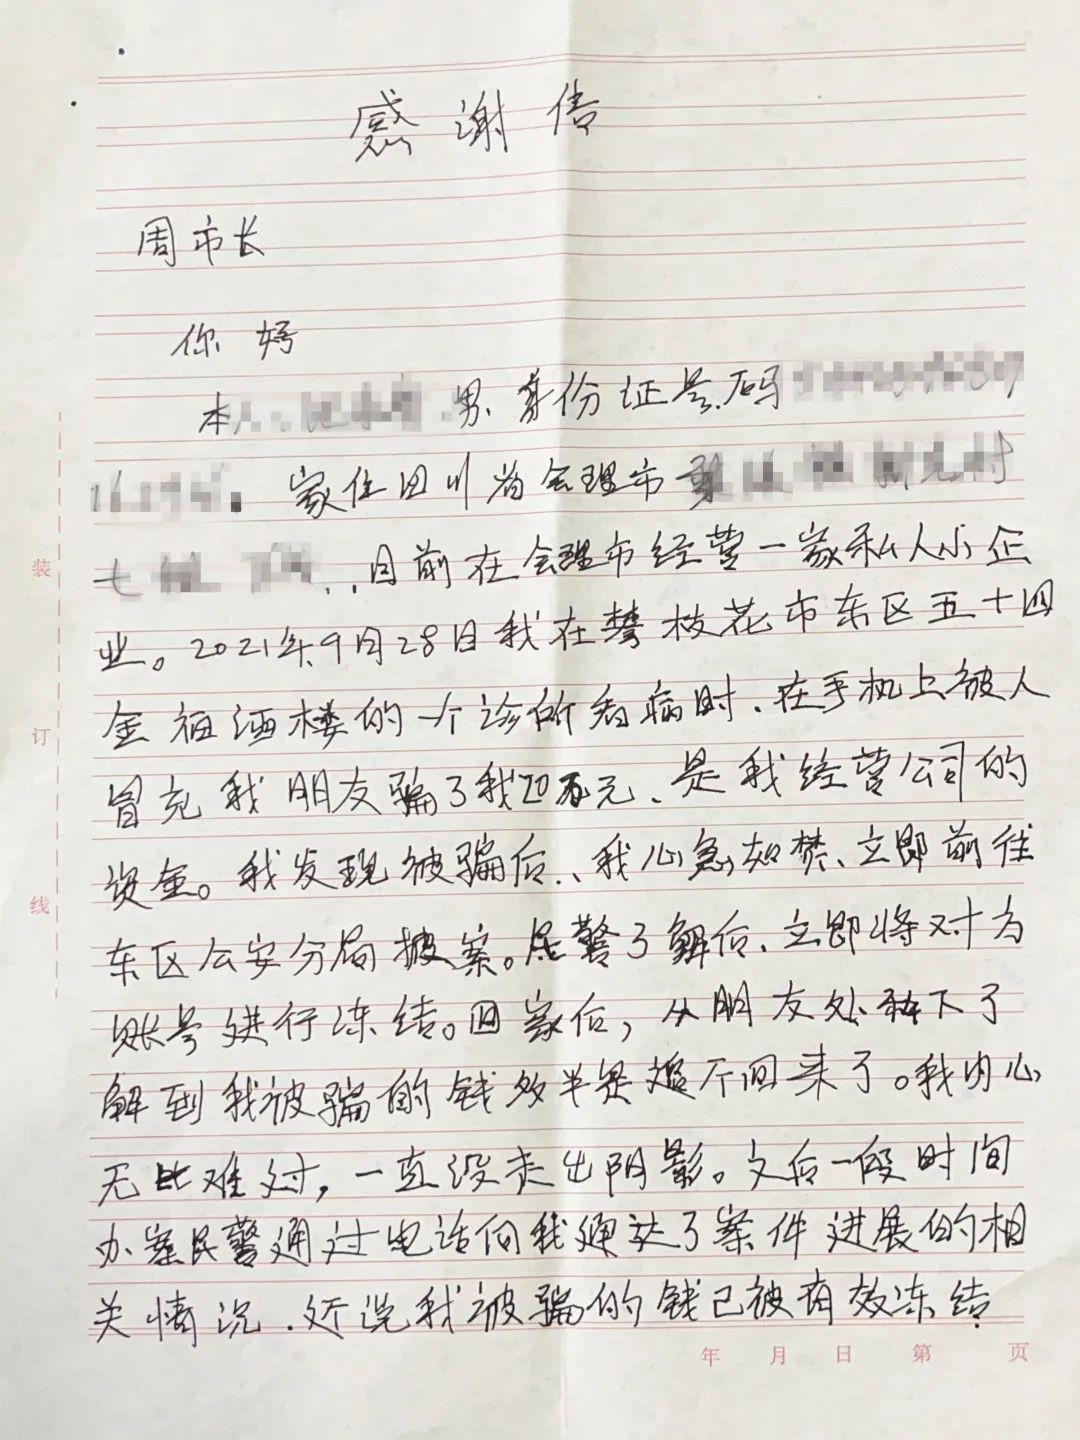 感谢信
周市长
你好
本 男、身份证号码
家住四川省会理市
七 目前在会理市经营一家私人小企
装
业。2021年9月28日我在攀枝花市东区五十四
金福酒楼的一个诊所看病时、在手机上被人
订
冒充我朋友骗了我20万元、是我经营公司的
资金。我发现被骗后、我心急如焚、立即前往
线
东区公安分局报案。民警了解后、立即将对方
账号进行冻结。回家后，从朋友处 下了
解到我被骗的钱多半是追不回来了。我内心
无比难过，一直没走出阴影。之后一段时间
办案民警通过电话向我通达了案件进展的相
关情况、还说我被骗的钱已被有效冻结.
年 月 日 第 页